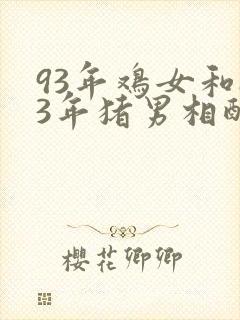 93年鸡女和
3年猪男相配
樱花卿卿